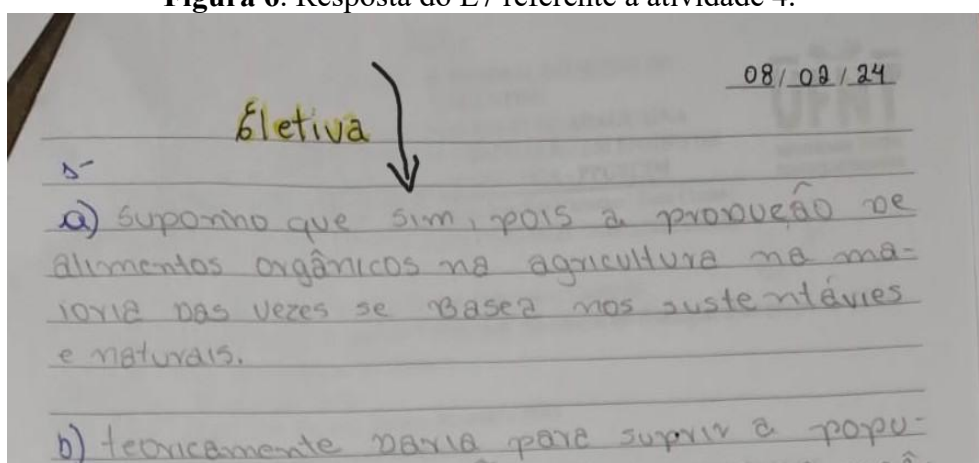 Figura 6: Resposta do E7 referente à atividade 4.
08/02/24
Eletiva
a) suponho que sim, pois a produção de
alimentos orgânicos na agricultura na ma-
ioria das vezes se basea nos sustentávies
e naturais.
b) teoricamente daria para suprir a popu-